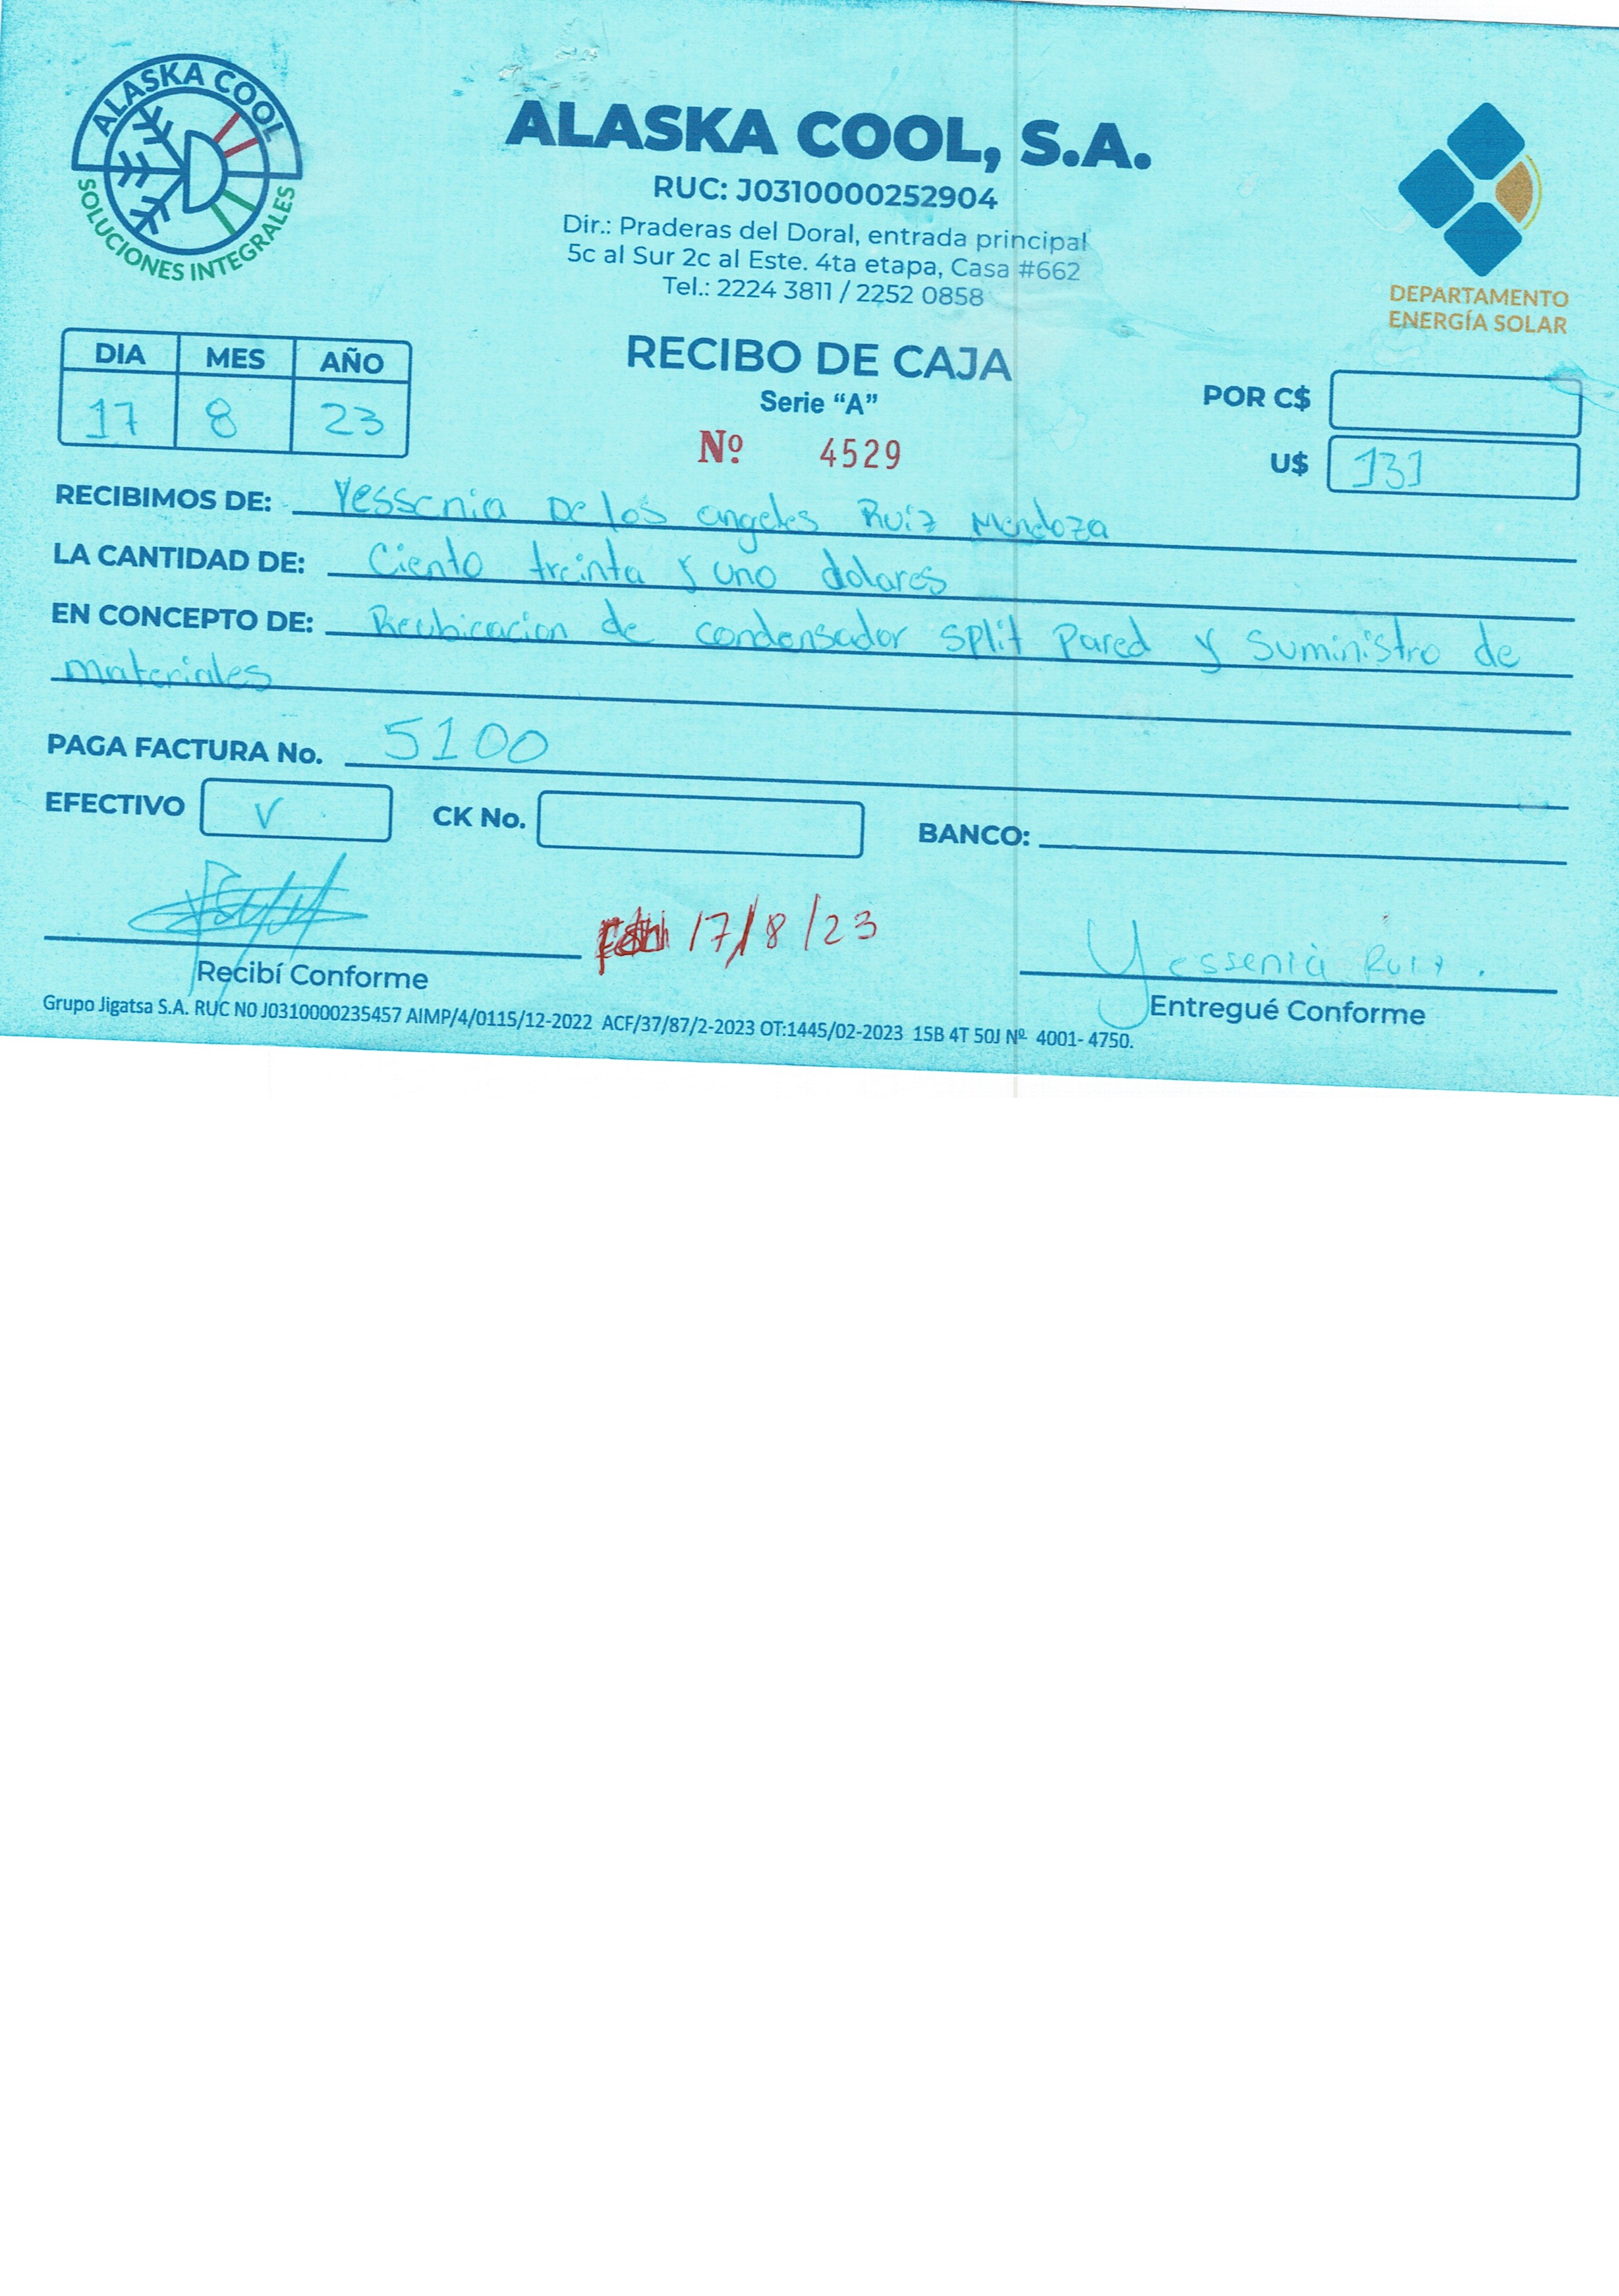 ALASKA COOL
SOLUCIONES INTEGRALES
ALASKA COOL, S.A.
RUC: J0310000252904
Dir.: Praderas del Doral, entrada principal
5c al Sur 2c al Este. 4ta etapa, Casa #662
Tel.: 2224 3811 / 2252 0858
DEPARTAMENTO
ENERGÍA SOLAR
DIA MES AÑO
17 8 23
RECIBO DE CAJA
Serie “A”
Nº 4529
POR C$
U$ 131
RECIBIMOS DE: Yessenia De los angeles Ruiz Mendoza
LA CANTIDAD DE: Ciento treinta y uno dolares
EN CONCEPTO DE: Reubicacion de condensador split Pared y suministro de
materiales
PAGA FACTURA No. 5100
EFECTIVO V CK No. BANCO:
17/8/23
Yessenia Ruiz.
Recibí Conforme
Entregué Conforme
Grupo Jigatsa S.A. RUC N0 J0310000235457 AIMP/4/0115/12-2022 ACF/37/87/2-2023 OT:1445/02-2023 15B 4T 50J Nº 4001- 4750.